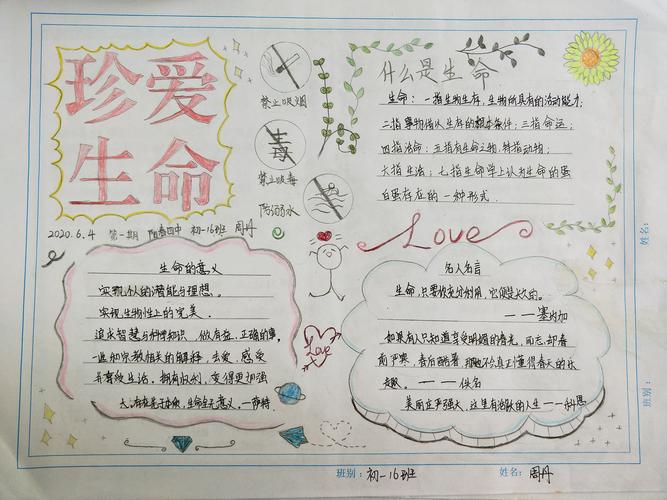 珍爱
生命
禁止吸烟
禁止吸毒
防溺水
2020.6.4 第一期 阳春四中 初一16班 周丹
什么是生命
生命：一指生物生存，生物所具有的活动能力；
二指事物借以生存的根本条件；三指命运；
四指活命；五指有生命之物，特指动物；
六指生活；七指生命学上认为生命的蛋
白质存在的一种形式.
Love
生命的意义
实现认人的潜能与理想。
实现生物性上的完美.
追求智慧与科学知识，做有益、正确的事。
一些和宗教相关的解释，去爱、感受
并享受生活，拥有权利，变得更加强
大，生命无意义。—萨特
Love
名人名言
生命，只要你充分利用，它便是长久的。
——塞内加
如果有人只知道享受明媚的春光，而忘却春
前严寒，春后酷暑，那他不会真正懂得春天的乐
趣。——佚名
美丽庄严强大，这里有活跃的人生——
姓名：
班别：
班别：初一16班
姓名：周丹